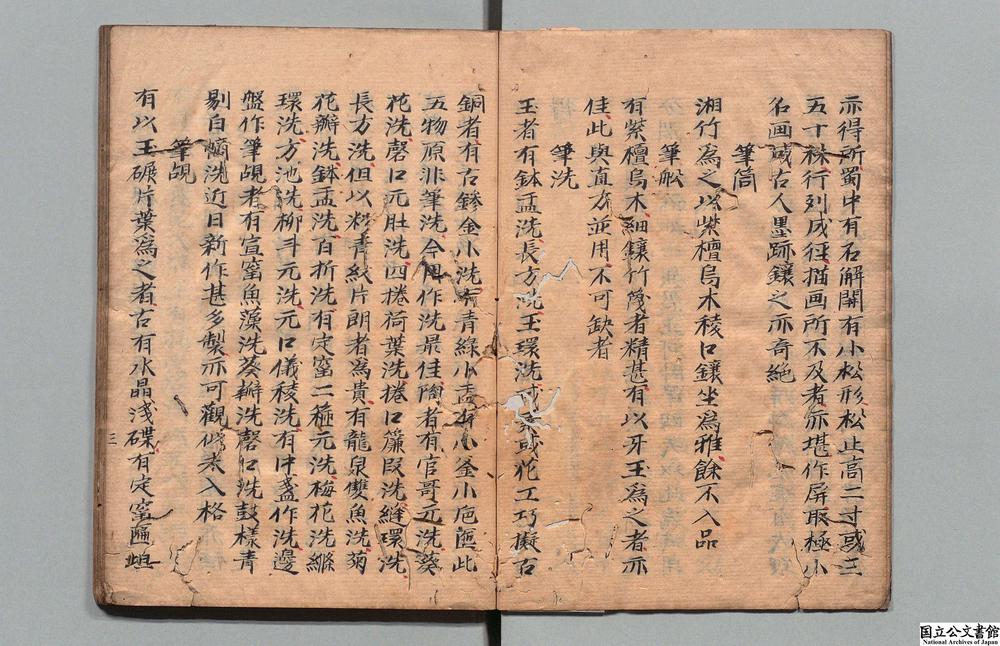 亦得所蜀中有石解開有小松形松止高二寸或三
五十株行列成徑描画所不及者亦堪作屏取極小
名画或古人墨跡鑲之亦奇絶
筆筒
湘竹爲之以紫檀烏木稜口鑲坐爲雅餘不入品
筆船
有紫檀烏木細鑲竹篾者精甚有以牙玉爲之者亦
佳此與直方並用不可缺者
筆洗
玉者有鉢盂洗長方洗玉環洗或素或花工巧擬古
銅者有古鏒金小洗有青綠小盂有小釜小巵匜此
五物原非筆洗今用作洗最佳陶者有官哥元洗葵
花洗磬口元肚洗四捲荷葉洗捲口簾段洗縫環洗
長方洗但以粉青紋片朗者爲貴有龍泉雙魚洗菊
花瓣洗鉢盂洗百折洗有定窰三箍元洗梅花洗縧
環洗方池洗柳斗元洗元口儀稜洗有中盞作洗邊
盤作筆覘者有宣窰魚藻洗葵瓣洗磬口洗鼓樣青
剔白螭洗近日新作甚多製亦可觀似未入格
筆覘
有以玉碾片葉爲之者古有水晶淺碟有定窰匾坦
三
国立公文書館
National Archives of Japan